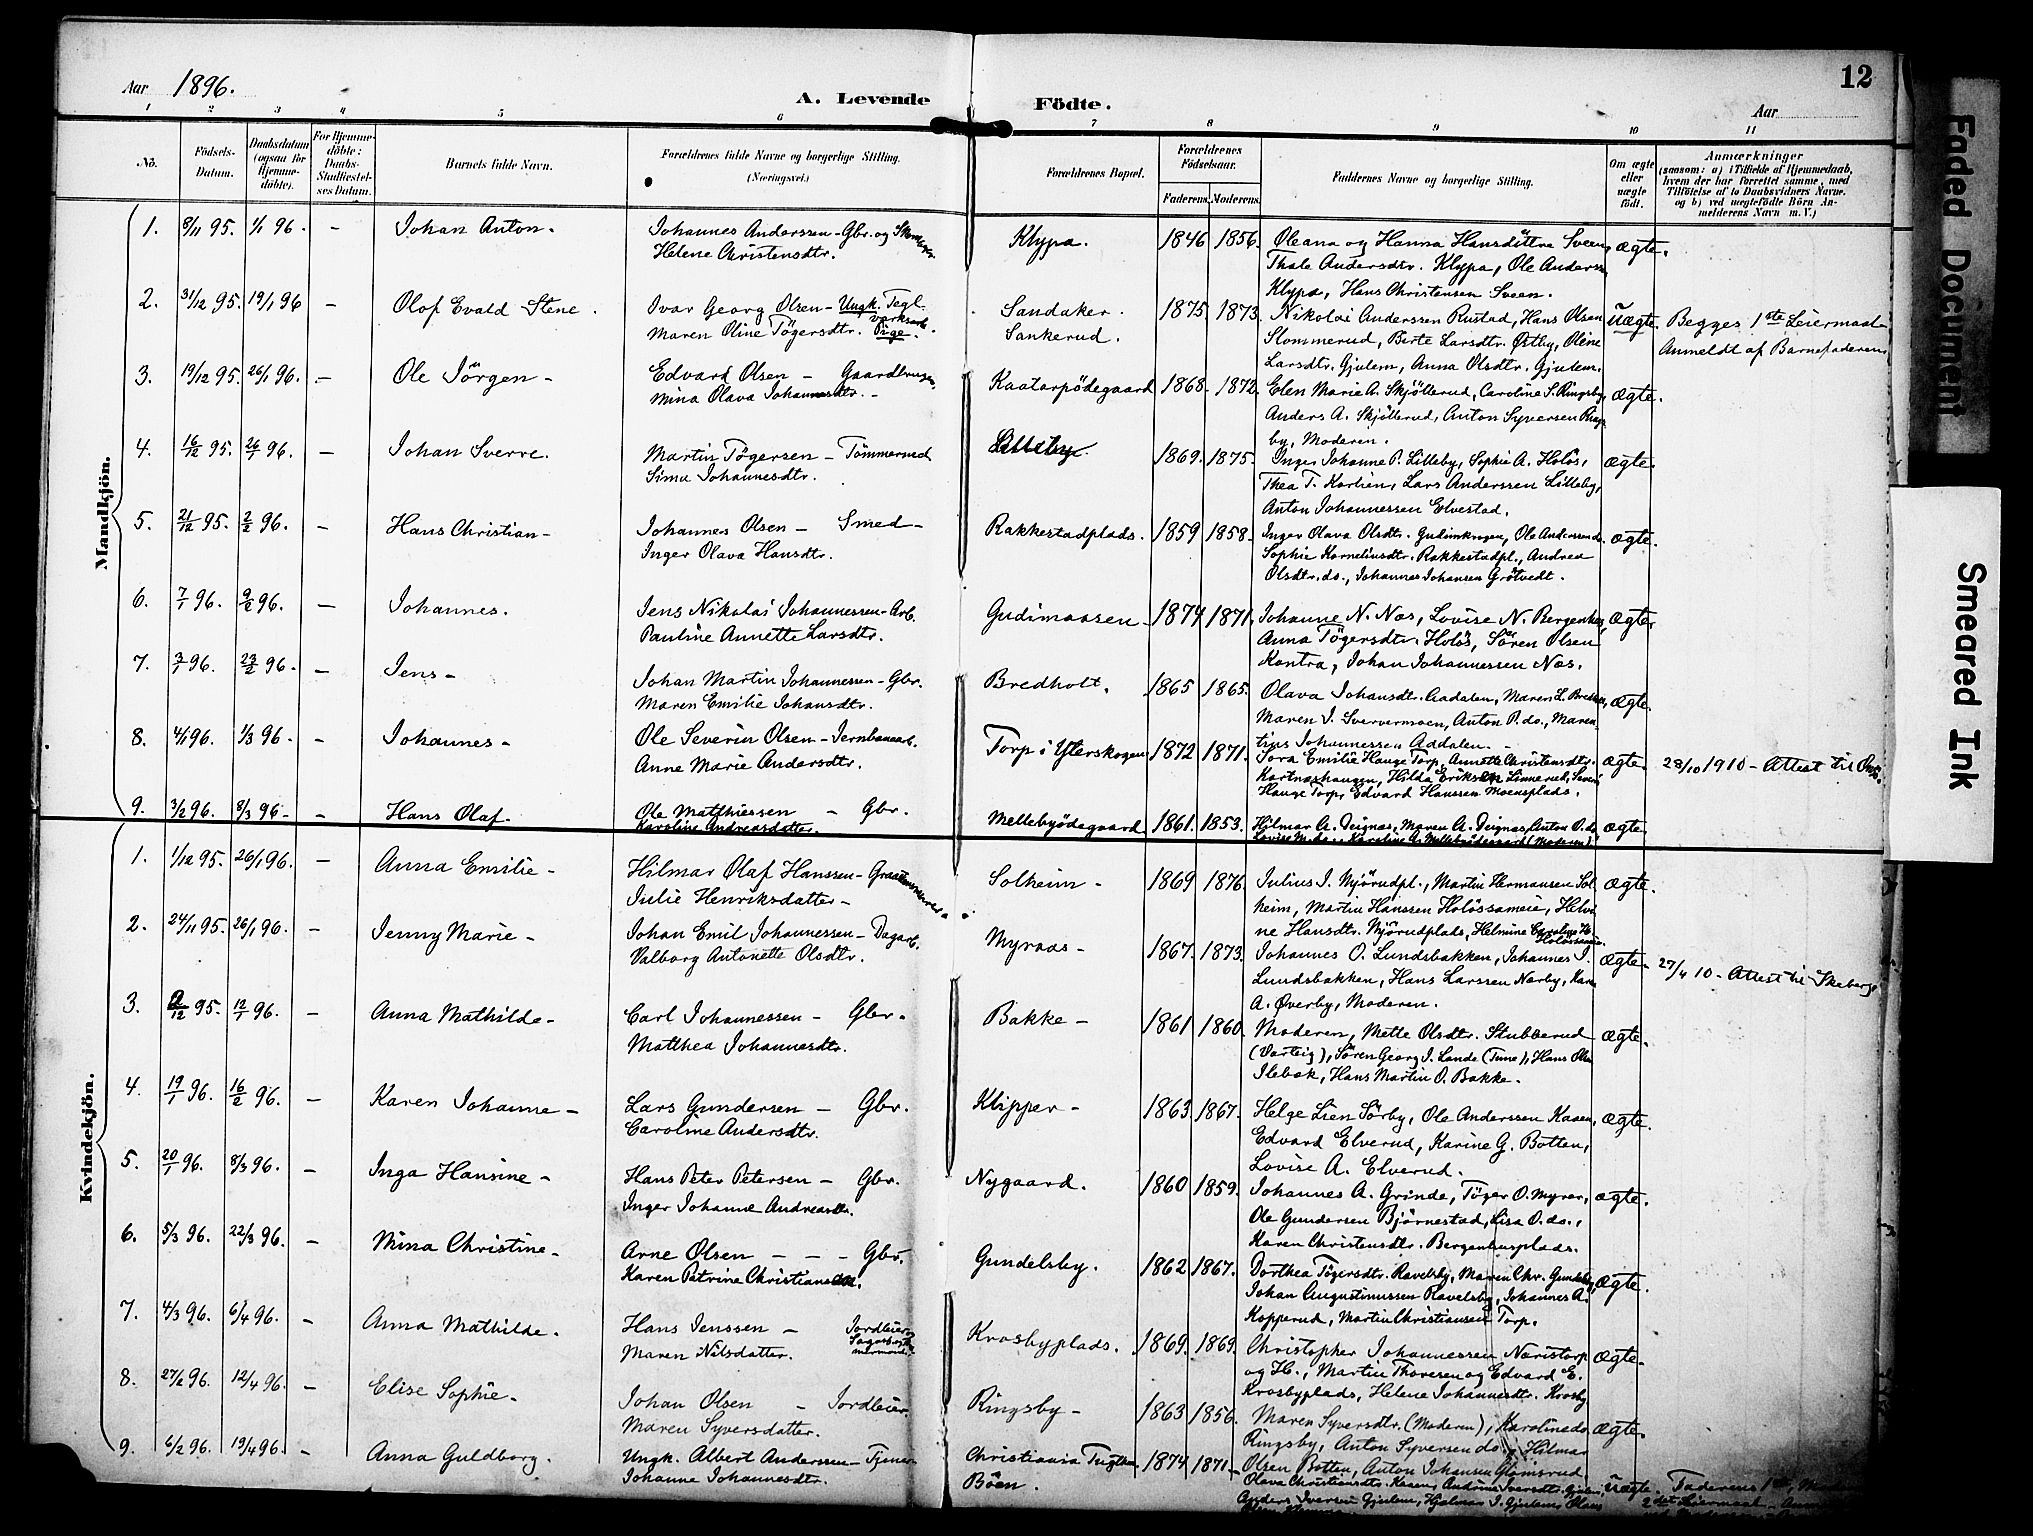 Aar 1896.
A. Levende Födte.
Aar
12
1 2 3 4 5 6 7 8 9 10 11
No.
Födsels-Datum.
Daabsdatum (ogsaa for Hjemmedöbte).
For Hjemmedöbte: Daabs-Stadfæstelsens Datum.
Barnets fulde Navn.
Forældrenes fulde Navne og borgerlige Stilling. (Næringsvei.)
Forældrenes Bopæl.
Forældrenes Födselsaar.
Faderens. Moderens.
Faddernes Navne og borgerlige Stilling.
Om ægte eller uægte födt.
Anmærkninger
(saasom: a) i Tilfælde af Hjemmedaab, hvem der har forrettet samme, med Tilföielse af to Daabsvidners Navne, og b) ved uægtefödte Börn Anmelderens Navn m. V.)
Mandkjön.
1. 8/11 95. 1/1 96. – Johan Anton. Johannes Anderssen – Gbr. og
Helene Christensdtr.
Klypa. 1846 1856. Oleana og Hanna Hansdöttre Sveen, ægte.
Thale Andersdtr. Klypa, Ole Anderss.
Klypa, Hans Christensen Sveen.
2. 31/12 95. 19/1 96 – Olof Evald Stene. Ivar Georg Olsen – Ungk. Tegl
værksarb.
Maren Oline Tögersdtr. Pige.
Sandaker. Sankerud. 1875. 1873. Nikolai Anderssen Rustad, Hans Olsen uægte. Begges 1ste Leiermaal
Slommerud, Birte Larsdtr. Östby, Oline Anmeldt af Barnefaderen
Larsdtr. Gjulem, Anna Olsdtr. Gjulem.
3. 19/12 95. 26/1 96. – Ole Jörgen – Edvard Olsen – Gaardbruger
Mina Olava Johannesdtr. –
Kaatorpödegaard 1868. 1872. Elen Marie A. Skjöllerud, Caroline S. Ringsby, ægte.
Anders A. Skjöllerud, Anton Syversen Rings
by, Moderen.
4. 16/12 95. 26/1 96. – Johan Sverre. Martin Tögersen – Tömmerm
Sima Johannesdtr.
Lilleby. 1869. 1875. Inger Johanne P. Lilleby, Sophie A. Holös, ægte.
Thea T. Kortien, Lars Anderssen Lilleby,
Anton Johannessen Elvestad.
5. 21/12 95. 2/2 96. – Hans Christian – Johannes Olsen – Smed –
Inger Olava Hansdtr.
Rakkestadplads. 1859 1858. Inger Olava Olsdtr. Gudimkrogen, Ole Anderssen do. ægte.
Sophie Korneliusdtr. Rakkestadpl., Andrea
Olsdtr. do., Johannes Johansen Grötvedt.
6. 7/1 96. 9/2 96. – Johannes. Jens Nikolai Johannessen – Arb.
Pauline Annette Larsdtr.
Gudimaasen 1874 1871. Johanne N. Næs, Lovise N. Bergenhus, ægte.
Anna Tögersdtr. Holös, Sören Olsen
Kontra, Johan Johannessen Næs.
7. 3/1 96. 23/2 96. – Jens – Johan Martin Johannessen – Gbr.
Maren Emilie Johansdtr.
Bredholt. 1865 1865. Olava Johansdtr. Aadalen, Maren L. Bredholt, ægte.
Maren J. Sververmoen, Anton P. do., Maren
tius Johannessen Aadalen. –
8. 4/1 96. 1/3 96. – Johannes – Ole Severin Olsen – Jernbanearb.
Anne Marie Andersdtr.
Torp i Ytterskogen 1872 1871. Tora Emilie Hauge Torp, Annette Christensdtr. ægte. 28/10 1910 – Attest til
Kortnæshaugen, Hilda Eriksen Linnerud, Severin
Hauge Torp, Edvard Hanssen Moensplads.
9. 3/2 96. 8/3 96 – – Hans Olaf. Ole Mathiessen – Gbr.
Karoline Andreasdatter.
Mellebyödegaard 1861. 1853. Hilmar A. Deignæs, Maren A. Deignæs, Anton O. do. ægte.
Lovise M. do., Karoline A. Mellebyödegaard (Moderen).
Kvindekjön.
1. 1/12 95. 26/1 96. – Anna Emilie – Hilmar Olaf Hanssen –
Julie Henriksdatter –
Solheim – 1869 1876. Julius J. Mjörudpl., Martin Hermansen Sol ægte.
heim, Martin Hanssen Holössameie, Helvi
ne Hansdtr. Mjörudplads, Helmine Caroline
Holössameie.
2. 24/11 95. 26/1 96. – Jenny Marie – Johan Emil Johannessen – Dagarb.
Valborg Antonette Olsdtr.
Myraas – 1867. 1873. Johannes O. Lundsbakken, Johannes J. ægte – 27/4 10 – Attest til Skeberg
Lundsbakken, Hans Larssen Nærby, Karen
A. Øverby, Moderen.
3. 2/12 95. 12/1 96. – Anna Mathilde – Carl Johannessen – Gbr. –
Mathea Johannesdtr.
Bakke – 1861 1860. Moderen, Mette Olsdtr. Stubberud ægte.
(Varteig), Sören Georg J. Lande (Tune), Hans Olsen
Ilebæk, Hans Martin O. Bakke.
4. 19/1 96. 16/2 96. – Karen Johanne – Lars Gundersen – Gbr.
Caroline Andersdtr.
Klipper – 1863 1867. Helge Lien Sörby, Ole Anderssen Kaasen, ægte.
Edvard Elverud, Karine G. Botten,
Lovise A. Elverud.
5. 20/1 96. 8/3 96. – Inga Hansine – Hans Peter Petersen – Gbr.
Inger Johanne Andreasdtr.
Nygaard. 1860 1859. Johannes A. Grinde, Töger O. Myrer, ægte.
Ole Gundersen Björnestad, Lisa O. do.,
Karen Christensdtr. Bergenhusplads.
6. 5/3 96. 22/3 96. – Mina Christine – Arne Olsen – – – Gbr.
Karen Petrine Christiansdtr.
Gundelsby. 1862 1867. Dorthea Tögersdtr. Ravelsby, Maren Chr. Gundelsby, ægte.
Johan Augustinussen Ravelsby, Johannes A.
Kopperud, Martin Christiansen Torp.
7. 4/3 96. 6/4 96. – Anna Mathilde. Hans Jenssen – Jordleier
Maren Nilsdatter.
Krosbyplads. 1869. 1869. Christopher Johannessen Næristorp ægte –
og H., Martin Thoresen og Edvard E.
Krosbyplads, Helene Johannesdtr. Krosby
8. 27/2 96. 12/4 96. – Elise Sophie – Johan Olsen – Jordleier.
Maren Syversdatter.
Ringsby – 1863 1856. Maren Syversdtr. (Moderen), Karoline do. ægte.
Ringsby, Anton Syversen do., Hilmar
Olsen Botten, Anton Johansen Glomsrud.
9. 6/2 96. 19/4 96. – Anna Guldborg. Ungk. Albert Anderssen – Tjener
Johanne Johannesdtr.
Christiania
Böen. 1874 1871 – Olava Christiansdtr. Kaasen, Andrine Iversdtr. Gjulem, uægte. Faderens 1ste,
Anders Iversen Gjulem, Hjalmar J. Gjulem, 2det Leiermaal –
Faded Document
Smeared Ink